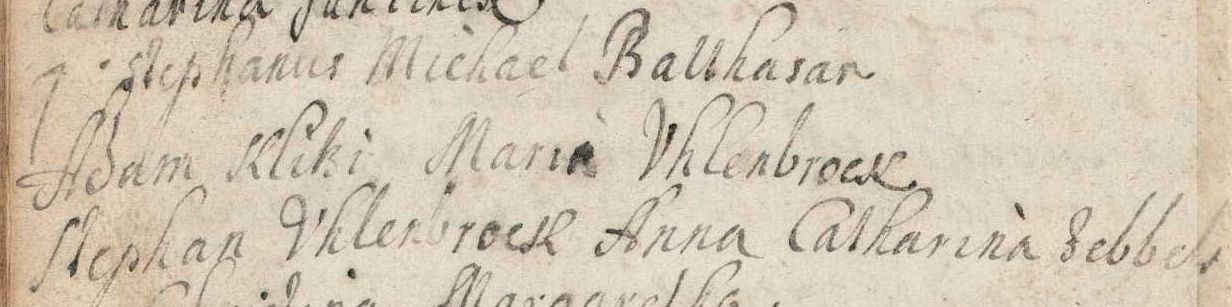 Catharina
Stephanus Michael Balthasar
Adam Kliki Maria Vhlenbrock
Stephan Vhlenbrock Anna Catharina Zebbels
Margaretha